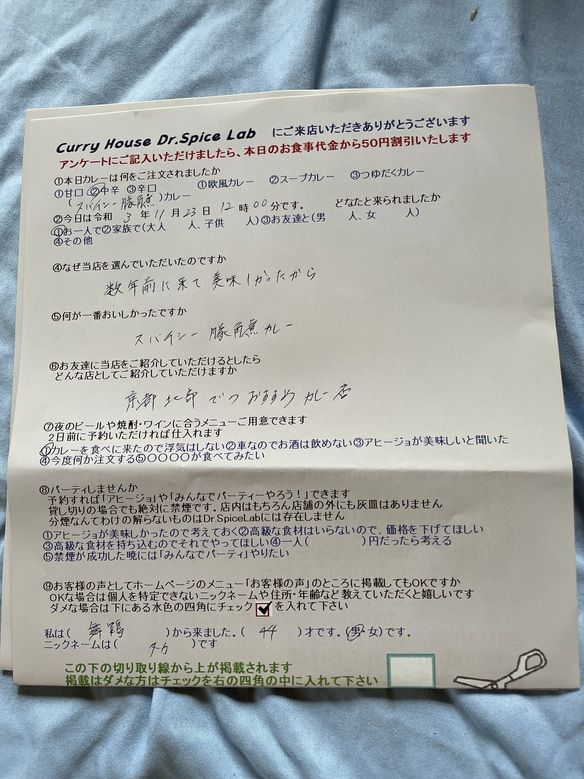 Curry House Dr.Spice Lab にご来店いただきありがとうございます
アンケートにご記入いただけましたら、本日のお食事代金から50円割引いたします
①本日カレーは何をご注文されましたか
①甘口 ②中辛 ③辛口 ①欧風カレー ②スープカレー ③つゆだくカレー
(スパイシー豚角煮)カレー
②今日は令和 3 年 11 月 23 日 12 時 00 分です。 どなたと来られましたか
①お一人で②家族で(大人 人、子供 人)③お友達と(男 人、女 人)
④その他
④なぜ当店を選んでいただいたのですか
数年前に来て美味しかったから
⑤何が一番おいしかったですか
スパイシー豚角煮カレー
⑥お友達に当店をご紹介していただけるとしたら
どんな店としてご紹介していただけますか
京都北部でのおすすめカレー店
⑦夜のビールや焼酎・ワインに合うメニューご用意できます
2日前に予約いただければ仕入れます
①カレーを食べに来たので浮気はしない②車なのでお酒は飲めない③アヒージョが美味しいと聞いた
④今度何か注文する⑤○○○○が食べてみたい
⑧パーティしませんか
予約すれば「アヒージョ」や「みんなでパーティーやろう!」できます
貸し切りの場合でも絶対に禁煙です。店内はもちろん店舗の外にも灰皿はありません
分煙なんてわけの解らないものはDr.SpiceLabには存在しません
①アヒージョが美味しかったので考えておく②高級な食材はいらないので、価格を下げてほしい
③高級な食材を持ち込むのでそれでやってほしい④一人( )円だったら考える
⑤禁煙が成功した晩には「みんなでパーティ」やりたい
⑨お客様の声としてホームページのメニュー「お客様の声」のところに掲載してもOKですか
OKな場合は個人を特定できないニックネームや住所・年齢など教えていただくと嬉しいです
ダメな場合は下にある水色の四角にチェック を入れて下さい
私は( 舞鶴 )から来ました。( 44 )才です。(男 女)です。
ニックネームは( )です
この下の切り取り線から上が掲載されます
掲載はダメな方はチェックを右の四角の中に入れて下さい